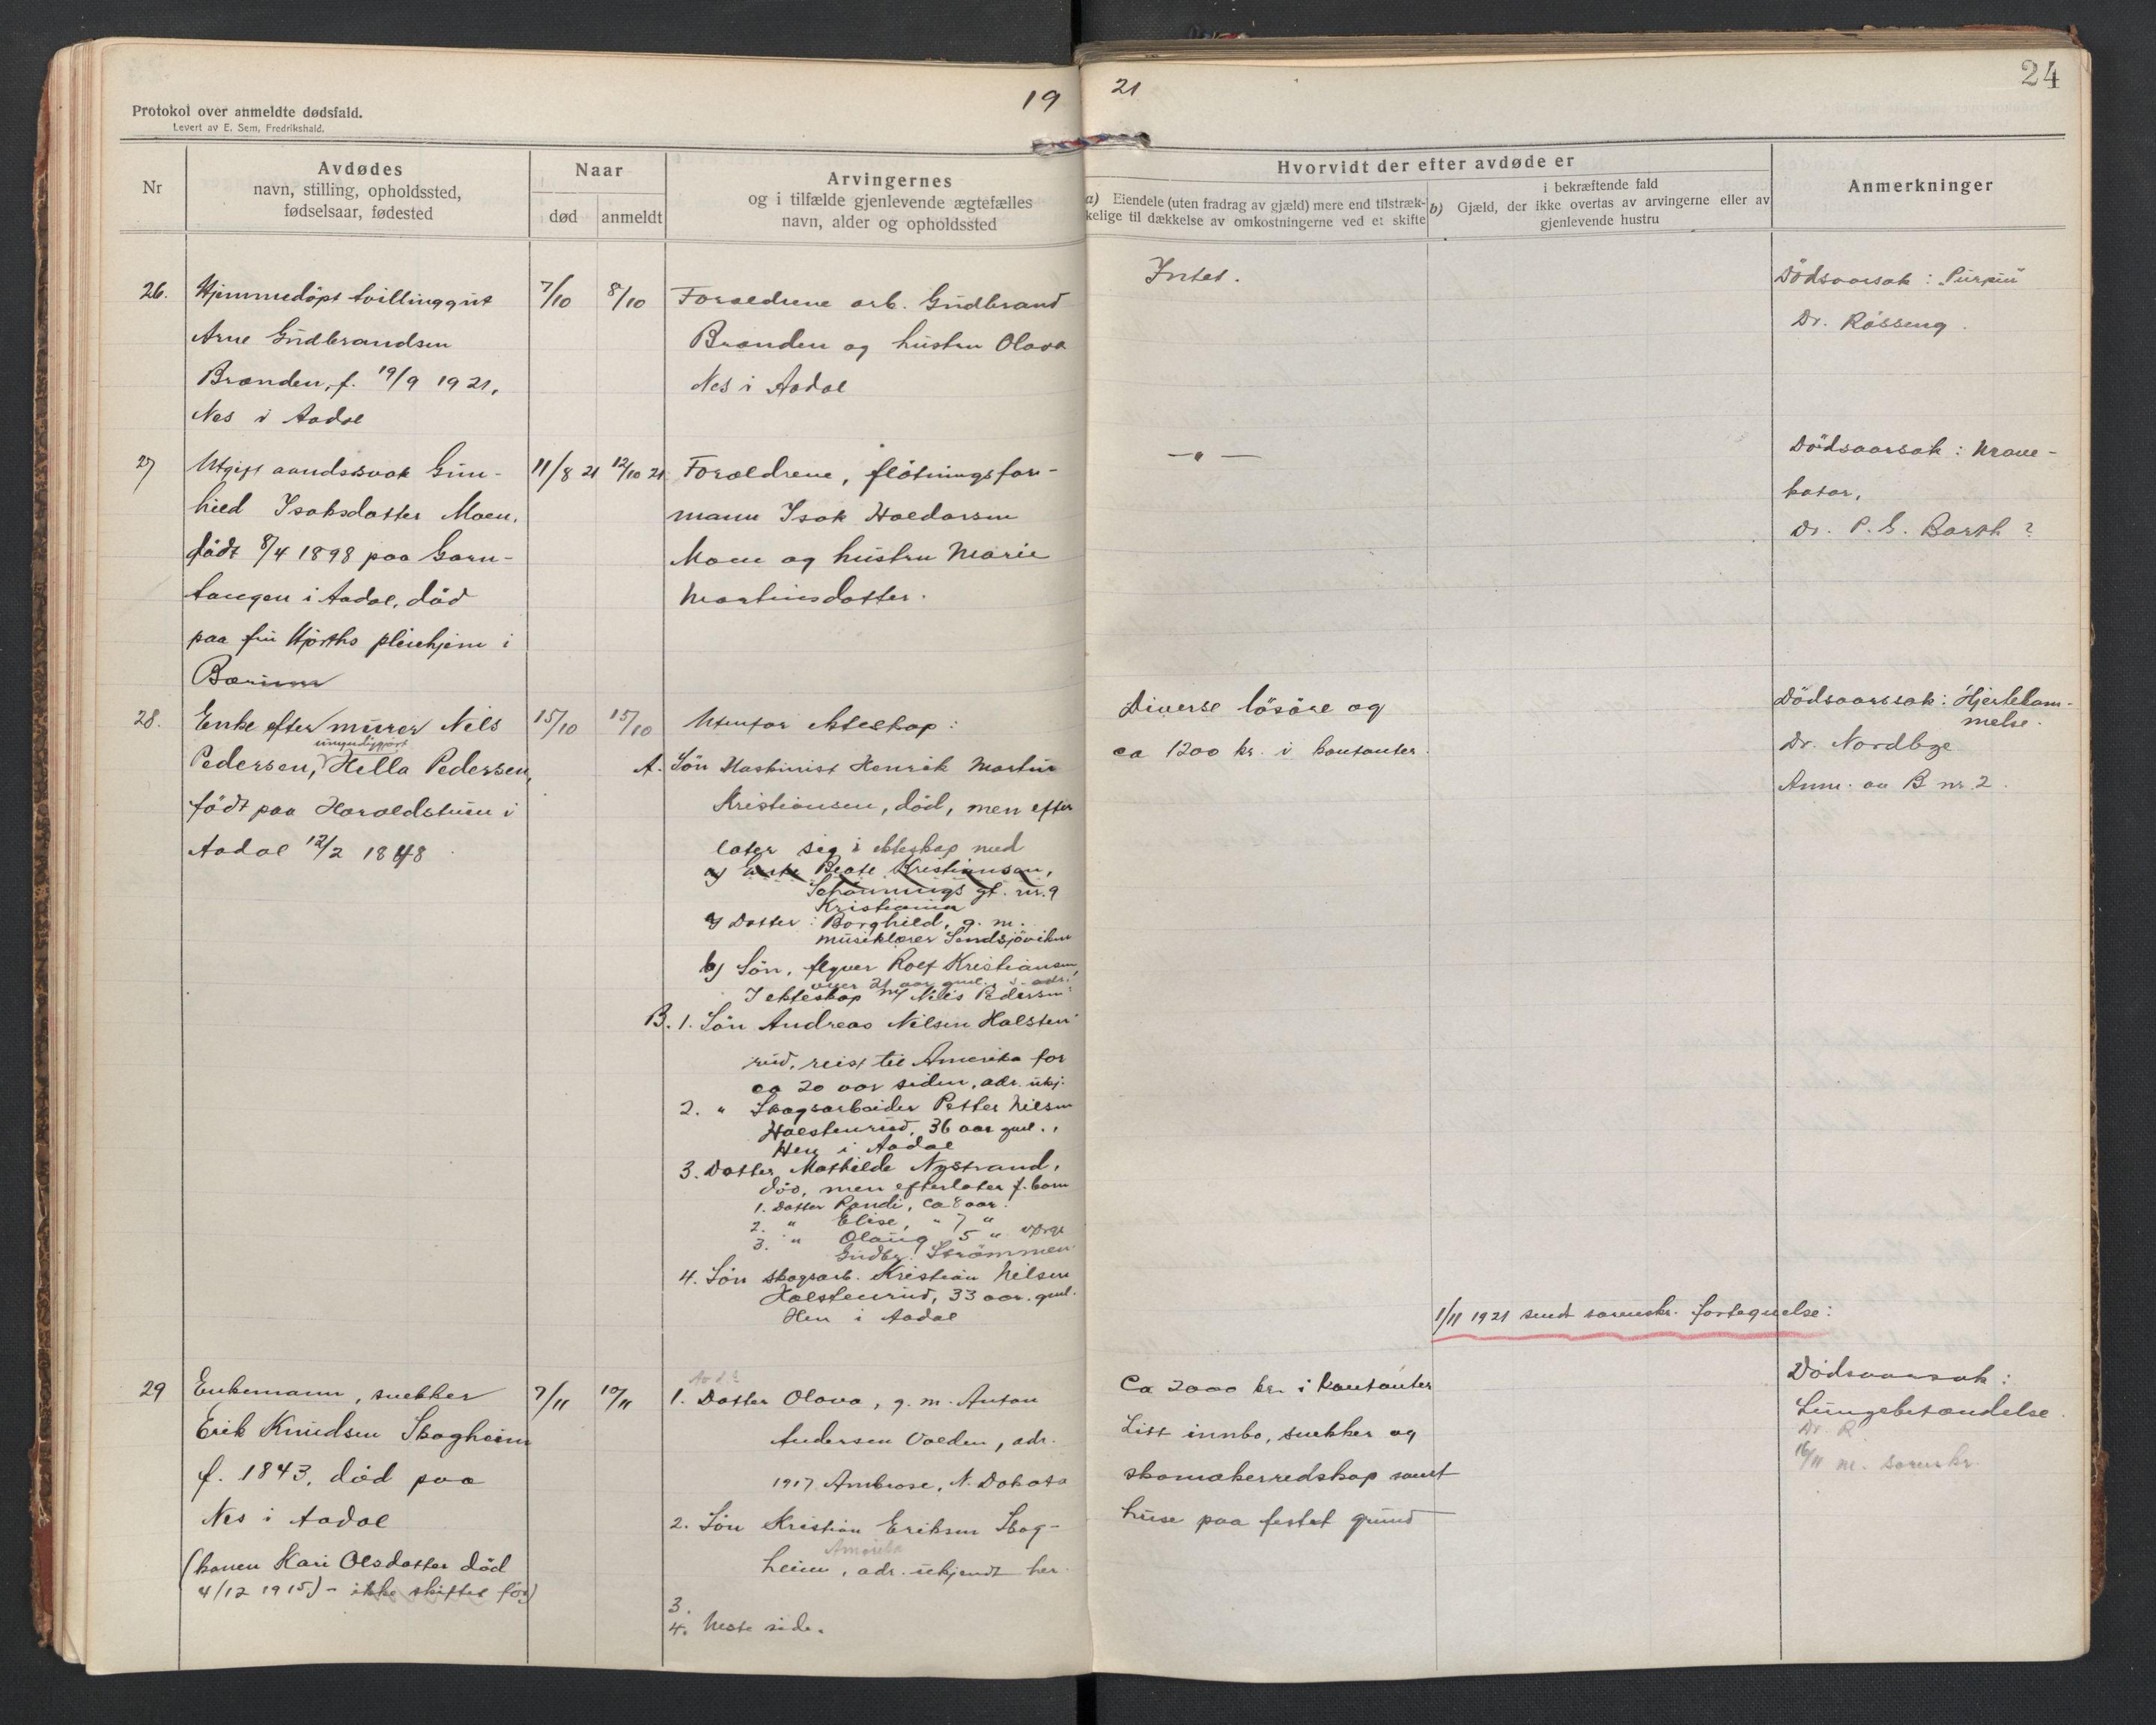 19
21
24
Protokol over anmeldte dødsfald.
Levert av E. Sem, Fredrikshald.
Nr
Avdødes
navn, stilling, opholdssted,
fødselsaar, fødested
Naar
død
anmeldt
Arvingernes
og i tilfælde gjenlevende ægtefælles
navn, alder og opholdssted
Hvorvidt der efter avdøde er
a) Eiendele (uten fradrag av gjæld) mere end tilstræk-
kelige til dækkelse av omkostningerne ved et skifte
i bekræftende fald
b) Gjæld, der ikke overtas av arvingerne eller av
gjenlevende hustru
Anmerkninger
26.
Hjemmedöpt tvillinggut
Arne Gudbrandsen
Branden, f. 19/9 1921,
Nes i Aadal
7/10
8/10
Foraeldrene arb. Gudbrand
Branden og hustru Olava
Nes i Aadal
Intet.
Dödsaarsak:
Dr. Rösseng.
27
Ugift aandssvak Gun-
hild Isaksdatter Moen,
födt 8/4 1898 paa Garn-
tangen i Aadal, död
paa fru Hjorths pleiehjem i
Bærum
11/8 21
12/10 21
Foraeldrene, flötningsfor-
mann Isak Haldorsen
Moen og hustru Marie
Martinsdatter.
— " —
Dödsaarsak: Mave-
katar,
Dr. P. G. Barth?
28.
Enke efter murer Nils
umyndiggjort
Pedersen, Hella Pedersen,
födt paa Haraldstuen i
Aadal 12/2 1848
15/10
15/10
Utenfor ekteskap:
A. Sön Maskinist Henrik Martin
Kristiansen, död, men efter
later sig i ekteskap med
a) Enke Beate Kristiansen,
Schönnings gt. nr. 9
Kristiania
a) Datter: Borghild, g. m.
musiklærer Sandsjöviken
b) Sön, flyver Rolf Kristiansen,
over 21 aar gml., s. adr.
I ekteskap m/ Nils Pedersen:
B. 1. Sön Andreas Nilsen Halsten
rud, reist til Amerika for
ca 20 aar siden, adr. ukj.
2. " Skogsarbeider Petter Nilsen
Halstenrud, 36 aar gml.,
Hen i Aadal
3. Datter Mathilde Nystrand,
död, men efterlater f. barn
1. Datter Randi, ca 8 aar.
2. " Elise, " 7 "
3. " Olaug 5 "
Gudbr. Strömmen
4. Sön skogsarb. Kristian Nilsen
Halstenrud, 33 aar. gml.
Hen i Aadal
Diverse lösöre og
ca 1200 kr. i kontanter.
Dödsaarssak: Hjertelam-
melse.
Dr. Nordbye
Anm. av B nr. 2.
1/11 1921 sendt sorenskr. fortegnelse:
29
Enkemann, snekker
Erik Knudsen Skogheim
f. 1843, död paa
Nes i Aadal
(konen Kari Olsdatter död
4/12 1915) – ikke skiftet för)
7/11
10/11
1. Datter Olava, g. m. Anton
Andersen Valden, adr.
1917 Ambrose, N. Dakota
2. Sön Kristian Eriksen Skog-
Amerika
heim, adr. ukjendt her.
3.
4. Neste side.
Ca 2000 kr. i kontanter
Litt innbo, snekker og
skomakerredskap samt
huse paa festet grund
Dödsaarsak:
Lungebetændelse.
Dr. R
16/11 m. sorenskr.